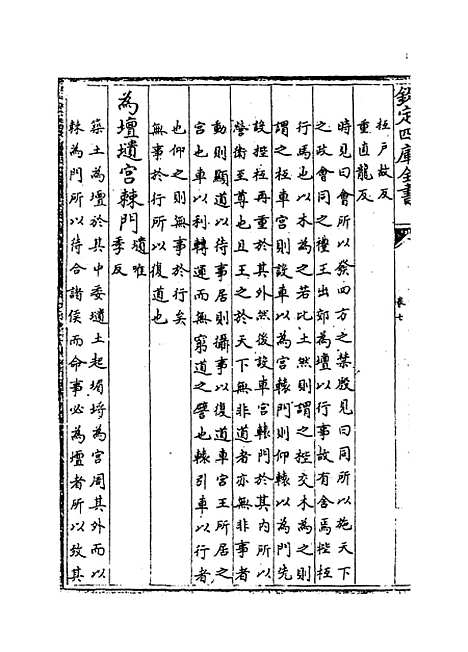 欽定四庫全書
卷七
枑戶故反
重直龍反
時見曰會所以發四方之禁殷見曰同所以施天下
之政會同之禮王出郊為壇以行事故有舍焉梐枑
行馬也以木為之若比土然則謂之梐交木為之則
謂之枑車宮則設車以為宮轅門則仰轅以為門先
設梐枑再重於其外然後設車宮轅門於其內所以
營衛王尊也且王之於天下無非道者亦無非事者
動則顯道以待事居則攝事以復道車宮王所居之
宮也車以利轉運而無窮道之譬也轅引車以行者
也仰之則無事於行矣
無事於行所以復道也
為壇壝宮棘門 壝唯
季反
築土為壇於其中委壝土起堳埒為宮周其外而以
棘為門所以待合諸侯而命事必為壇者所以致其